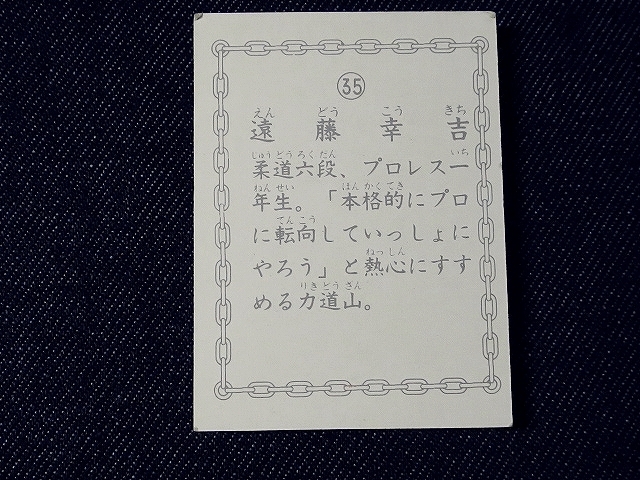 ㉟
えん どう こう きち
遠藤幸吉
じゅうどうろくだん いち
柔道六段、プロレス一
ねんせい ほんかくてき
年生。「本格的にプロ
てんこう
に転向していっしょに
ねっしん
やろう」と熱心にすす
りきどうざん
める力道山。